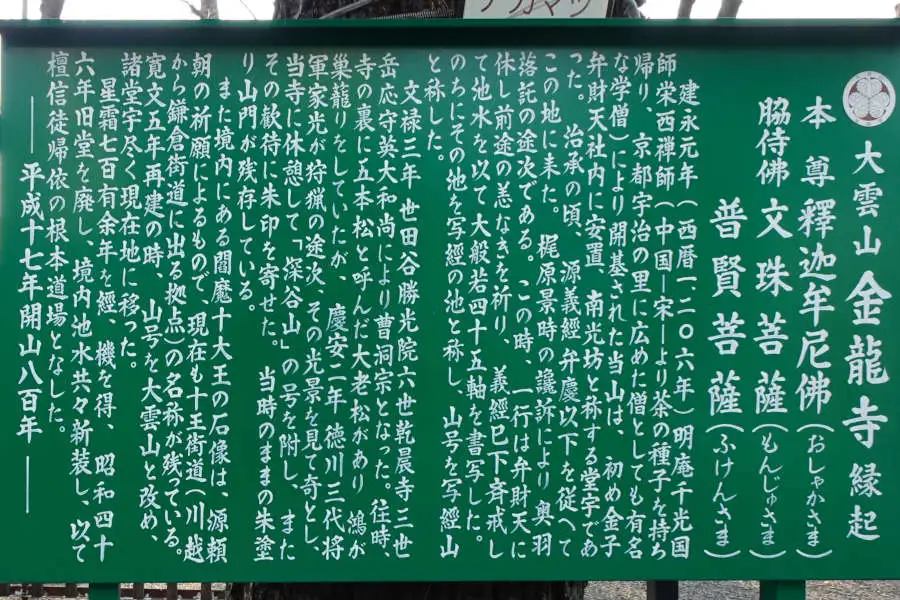 ナカマツ
大雲山 金龍寺 縁起
本尊 釋迦牟尼佛(おしゃかさま)
脇侍佛 文珠菩薩(もんじゅさま)
普賢菩薩(ふけんさま)
建永元年(西暦一二〇六年)明庵千光国
師栄西禅師(中国―宋―より茶の種子を持ち
帰り、京都宇治の里に広めた僧としても有名
な学僧)により開基された当山は、初め金子
弁財天社内に安置、南光坊と称する堂宇であ
った。 治承の頃、源義經弁慶以下を従へて
この地に来た。 梶原景時の讒訴により奥羽
落託の途次である。この時、一行は弁財天に
休し前途の恙なきを祈り、義經巳下斉戒し
て池水を以て大般若四十五軸を書写した。
のちにその池を写經の池と称し、山号を写經山
と称した。
文禄三年 世田谷勝光院六世乾晨寺三世
岳応守英大和尚により曹洞宗となった。往時、
寺の裏に五本松と呼んだ大老松があり、鴻が
巣籠りをしていたが、慶安二年 徳川三代将
軍家光が狩猟の途次、その光景を見て奇とし、
当寺に休憩して「深谷山」の号を附し、また
その歓待に朱印を寄せた。 当時のままの朱塗
り山門が残存している。
また境内にある閻魔十大王の石像は、源頼
朝の祈願によるもので、現在も十王街道(川越
から鎌倉街道に出る拠点)の名称が残っている。
寛文五年再建の時、山号を大雲山と改め、
諸堂宇尽く現在地に移った。
星霜七百有余年を經、機を得、昭和四十
六年旧堂を廃し、境内池水共々新装し、以て
檀信徒帰依の根本道場となした。
――平成十七年開山八百年――